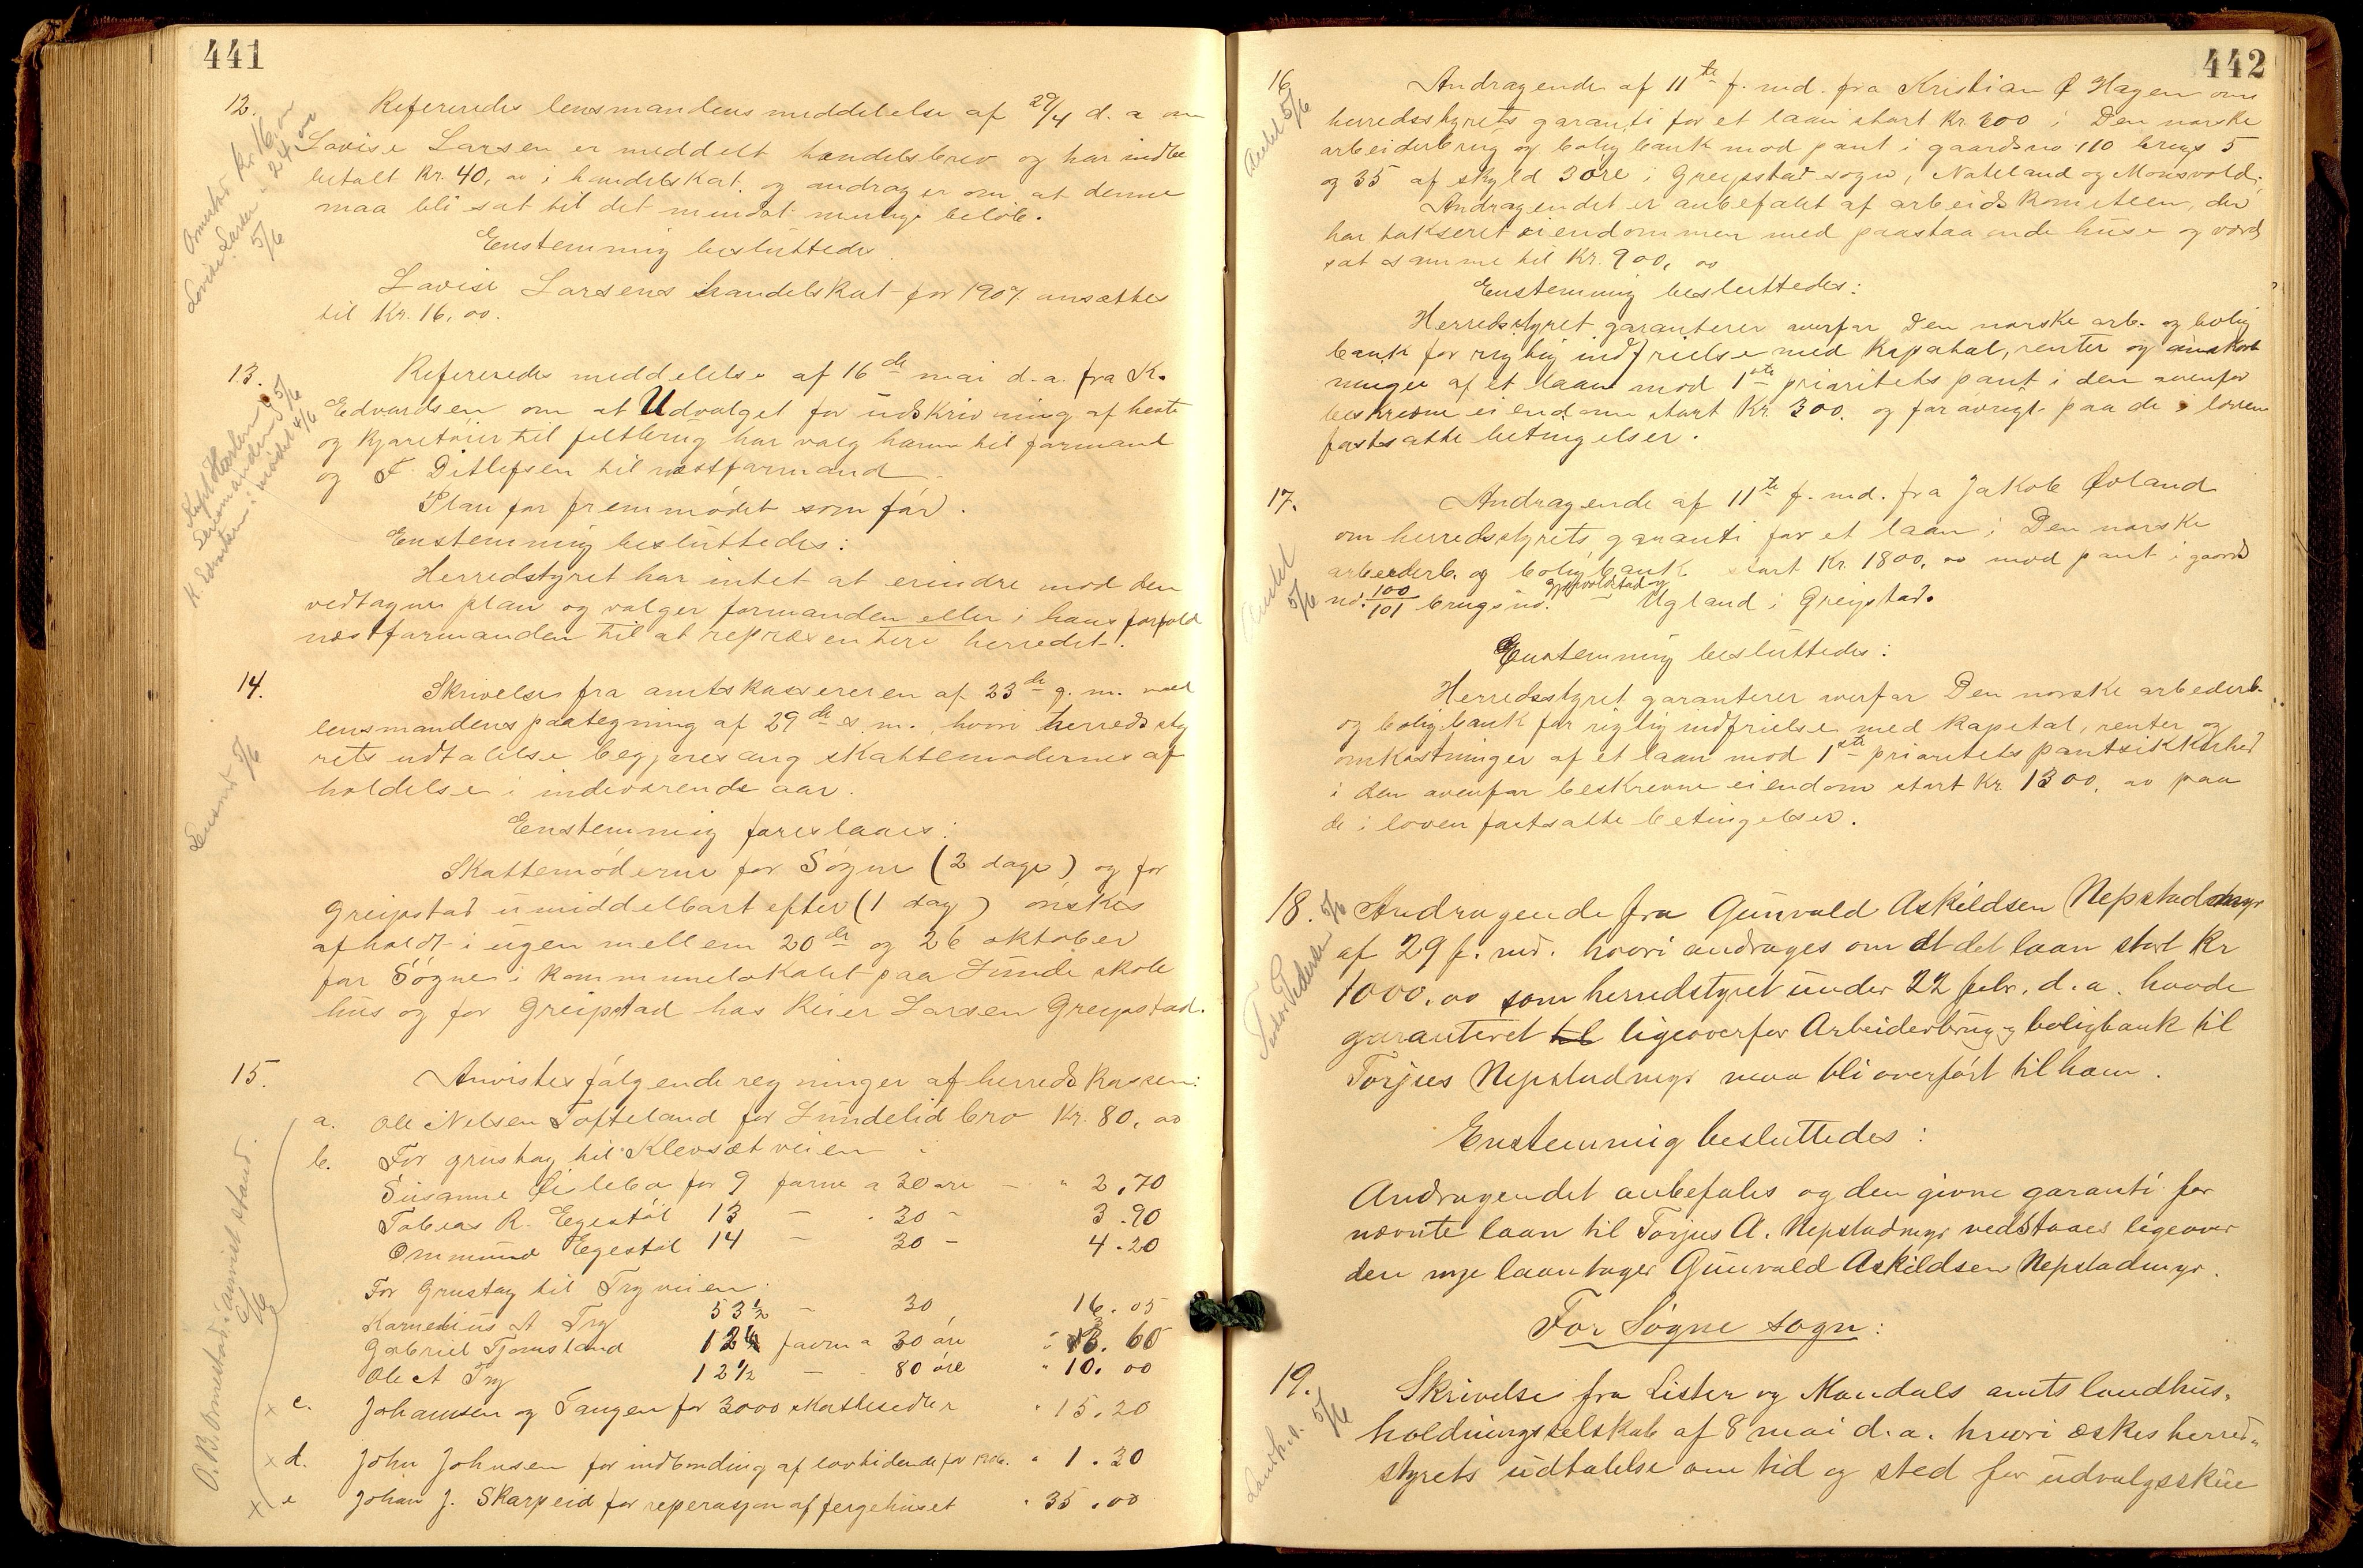 441
12. Refereredes lensmandens meddelelse af 29/4 d. a om
Lovise Larsen er meddelt handelsbrev og har indbe
betalt Kr. 40, 00 i handelskat. og andrager om at denne
maa bli sat til det mindst mulige beløb.
Enstemmig besluttedes
Lovise Larsens handelskat for 1907 ansættes
til Kr. 16, 00.
Ormestad Kr 16,00
Lovise Larsen " 24,00
5/6
13. Refereredes meddelelse af 16de mai d. a. fra K.
Edvardsen om at Udvalget for udskrivning af heste
og kjøretøier til feltbrug har valg ham til formand
og F. Ditlefsen til næstformand.
Plan for fremmødet som før.
Enstemmig besluttedes:
Herredstyret har intet at erindre mod den
vedtagne plan og valger formanden eller i hans forfald
næstformanden til at repræsentere herredet.
Lensmanden 5/6
14. Skrivelse fra amtskassereren af 23de g. m. med
lensmandens paategning af 29de s. m., hvori herredssty
rets udtalelse begjæres ang skattemødernes af
holdelse i indeværende aar.
Enstemmig foreslaaes:
Skattemøderne for Søgne (2 dage) og for
Greipstad umiddelbart efter (1 dag) ønskes
afholdt i ugen mellem 20de og 26 oktober
for Søgne i kommunelokalet paa Lunde skole
hus og for Greipstad hos Reier Larsen Greipstad.
Lensmd 5/6
15. Anvistes følgende regninger af herredskassen:
a. Ole Nilsen Tofteland for Lundelid bro Kr. 80, 00
b. For grustag til Klevsæt veien
Susanne Leilebo for 9 favne a 30 øre — " 2,70
Tobias R. Egestøl 13 — 30 - 3.90
Ommund Egestøl 14 — 30 - 4.20
For Grustag til Try veien.
Karnelius A Try 53½ - 30 16.05
Gabriel Tjomsland 12 favn a 30 øre " 3.60
Ole A Try 12½ — 80 øre " 10.00
c. Johansen og Tangen for 3000 skattesedler " 15.20
d. John Johnsen for indbinding af lovtidende for 1906. " 1.30
e Johan J. Skarpeid for reperasjon af fergehuset " 35.00
O. B. Ormestad anvist stand.
6/6
442
16. Andragende af 11te f. md. fra Kristian Ø Hagen om
herredsstyrets garanti for et laan stort Kr. 300 i Den norske
arbeiderbrug og bolig bank mod pant i gaardsno 110 brugs 5
og 35 af skyld 3 øre i Greipstad sogn, Nateland og Monsvold.
Andragendet er anbefalet af arbeidskomiteen, der
har takseret eiendommen med paastaaende huse og værd
sat samme til Kr. 900, 00
Enstemmig besluttedes:
Herredsstyret garanterer overfor Den norske arb. og bolig
bank for rigtig indfrielse med kapatal, renter og omkost
ninger af et laan mod 1ste prioritets pant i den ovenfor
beskrevne eiendom stort Kr 300. og forøvrigt paa de i loven
fastsatte betingelser.
Andet 5/6
17. Andragende af 11te f. md. fra Jakob Øvland
om herredsstyrets garanti for et laan i Den norske
arbeiderb. og boligbank stort Kr. 1800, 00 mod pant i gaards
no. 100/101 brugsno. Ugland i Greipstad.
Enstemmig besluttedes:
Herredsstyret garanterer overfor Den norske arbederb.
og boligbank for rigtig indfrielse med kapital, renter og
omkostninger af et laan mod 1ste prioritets pantsikkerhed
i den ovenfor beskrevne eiendom stort Kr 1300, 00 paa
de i loven fastsatte betingelser.
Andet
5/6
18. Andragende fra Gunvald Askildsen Nepstadmyr
af 29 f. md. hvori andrages om at det laan stort Kr
1000,00 som herredstyret under 22 febr. d. a. havde
garanteret til ligeoverfor Arbeiderbrug og boligbank til
Torjus Nepstadmyr maa bli overført til ham.
Enstemmig besluttedes:
Andragendet anbefales og den givne garanti for
nævnte laan til Torjus A. Nepstadmyr vedstaaes ligeover
den nye laantager Gunvald Askildsen Nepstadmyr.
For Søgne sogn:
19. Skrivelse fra Lister og Mandals amts landhus-
holdningsselskab af 8 mai d. a. hvori æskes herred-
styrets udtalelse om tid og sted for udvalgsskue
Landh.s. 5/6